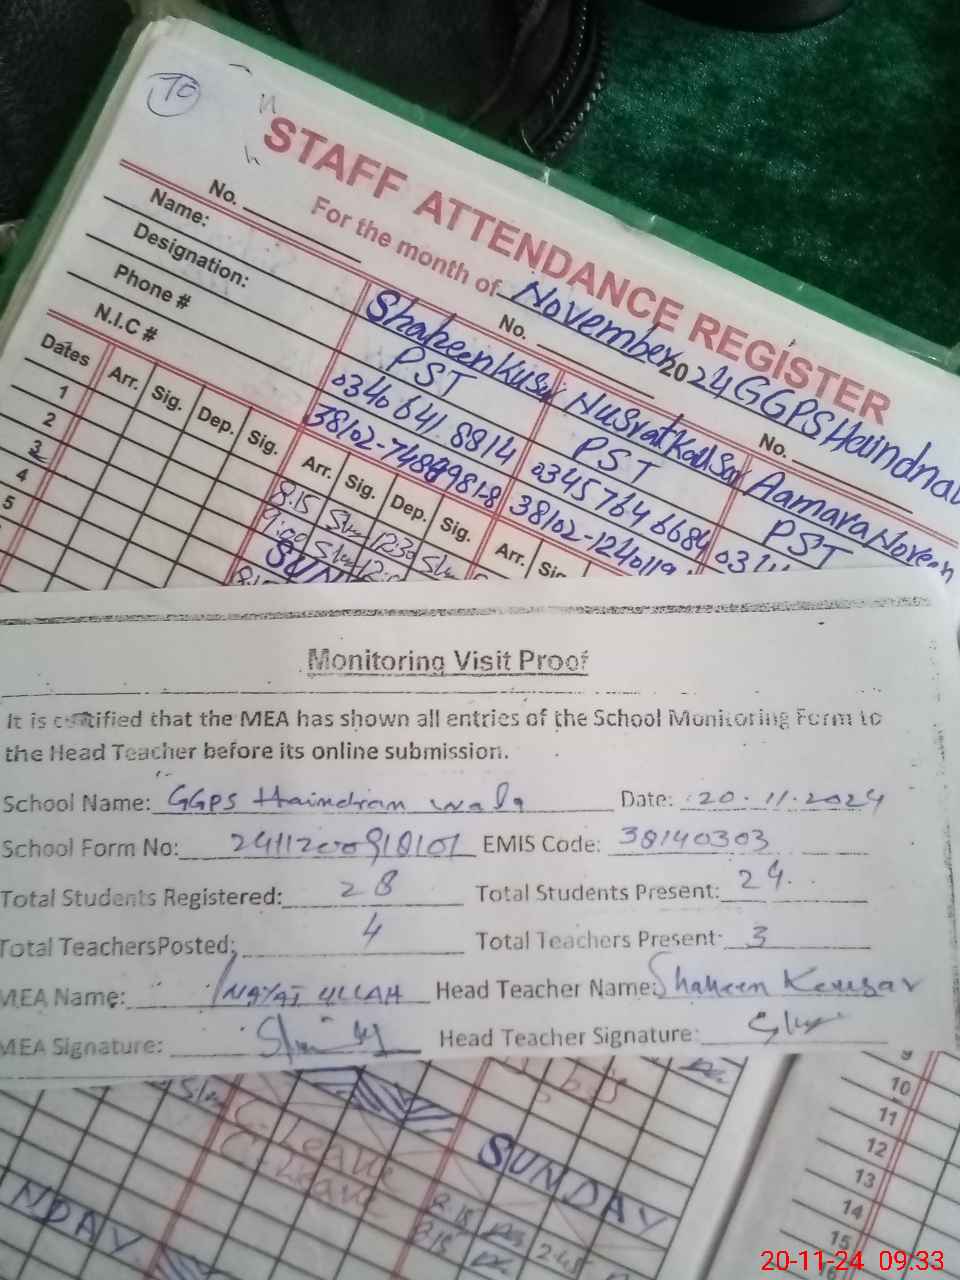 STAFF ATTENDANCE REGISTER
For the month of November 2024 GGPS
No. No. No.
Name: Shaheen Nusrat Kausar Aamara Noreen
Designation: PST PST PST
Phone # 0340 641 8814 0345764 6684
N.I.C #
Dates Arr. Sig. Dep. Sig. Arr. Sig. Dep. Sig. Arr.
1 8:15 12:30
2 9:00
3
4
5
Monitoring Visit Proof
It is certified that the MEA has shown all entries of the School Monitoring Form to
the Head Teacher before its online submission.
School Name: GGPS Haindran wala Date: 20.11.2024
School Form No: EMIS Code: 38140303
Total Students Registered: 28 Total Students Present: 24
Total TeachersPosted: 4 Total Teachers Present: 3
MEA Name: INAYAT ULLAH Head Teacher Name: Shaheen Kausar
MEA Signature: Head Teacher Signature:
9
10
11
12
13
14
15
Leave
Leave
SUNDAY
NDAY
8:15
8:15
20-11-24 09:33